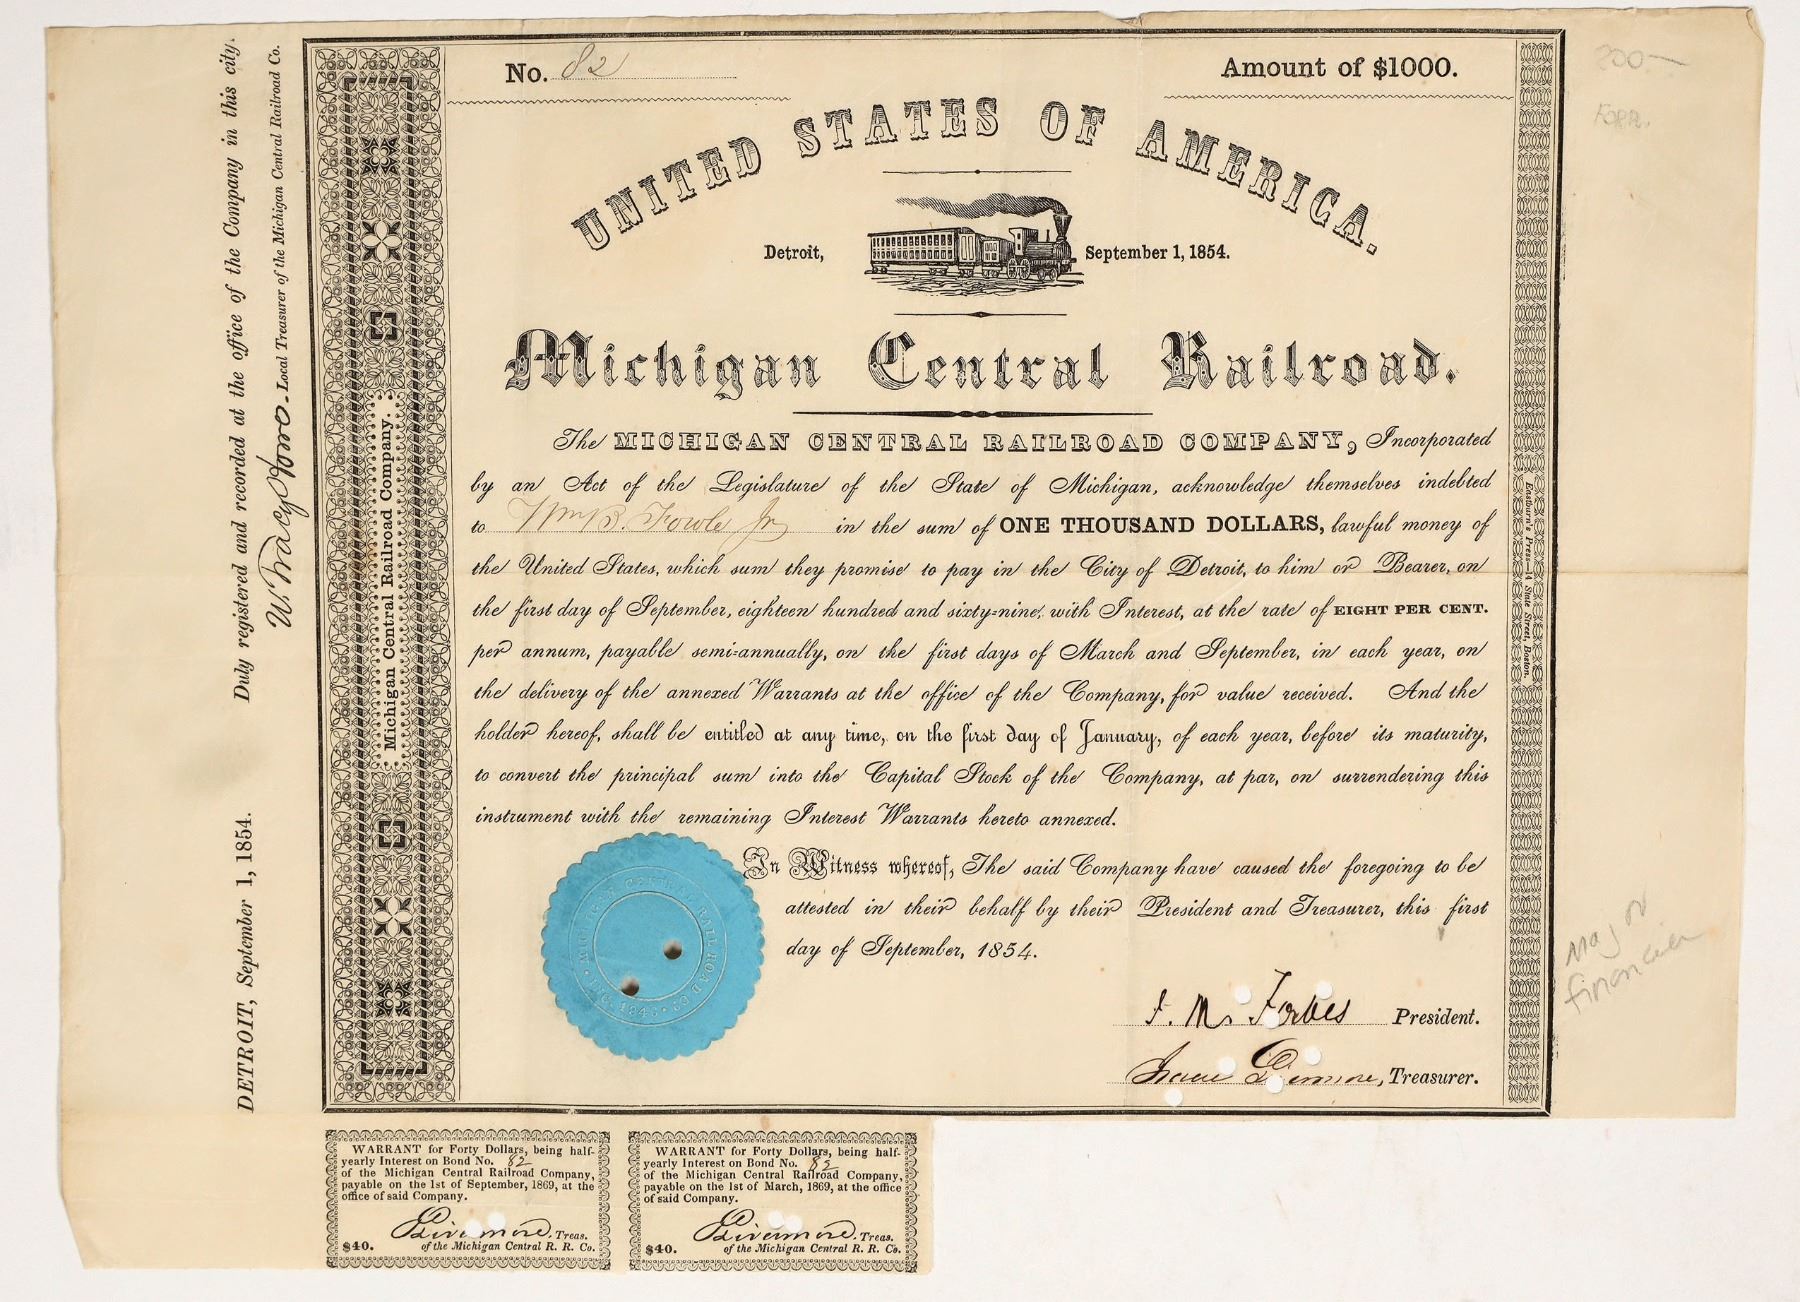 No. 82
Amount of $1000.
UNITED STATES OF AMERICA.
Detroit, September 1, 1854.
Michigan Central Railroad.
The MICHIGAN CENTRAL RAILROAD COMPANY, Incorporated
by an Act of the Legislature of the State of Michigan, acknowledge themselves indebted
to Wm B. Fowle Jr in the sum of ONE THOUSAND DOLLARS, lawful money of
the United States, which sum they promise to pay in the City of Detroit, to him or Bearer, on
the first day of September, eighteen hundred and sixty-nine, with Interest, at the rate of EIGHT PER CENT.
per annum, payable semi-annually, on the first days of March and September, in each year, on
the delivery of the annexed Warrants at the office of the Company, for value received. And the
holder hereof, shall be entitled at any time, on the first day of January, of each year, before its maturity,
to convert the principal sum into the Capital Stock of the Company, at par, on surrendering this
instrument with the remaining Interest Warrants hereto annexed.
In Witness whereof, The said Company have caused the foregoing to be
attested in their behalf by their President and Treasurer, this first
day of September, 1854.
J. M. Forbes President.
Isaac Livermore, Treasurer.
MICHIGAN CENTRAL RAILROAD CO. INC. 1846
Michigan Central Railroad Company.
Eastburn's Press—14 State Street, Boston.
DETROIT, September 1, 1854. Duly registered and recorded at the office of the Company in this city.
W. Tracy Howe. Local Treasurer of the Michigan Central Railroad Co.
200—
FORR.
Major
financier
WARRANT for Forty Dollars, being half-
yearly Interest on Bond No. 82
of the Michigan Central Railroad Company,
payable on the 1st of September, 1869, at the
office of said Company.
Livermore, Treas.
$40. of the Michigan Central R. R. Co.
WARRANT for Forty Dollars, being half-
yearly Interest on Bond No. 82
of the Michigan Central Railroad Company,
payable on the 1st of March, 1869, at the office
of said Company.
Livermore, Treas.
$40. of the Michigan Central R. R. Co.